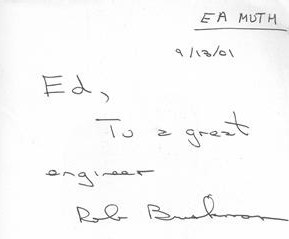 EA MUTH
9/13/01
Ed,
To a great
engineer
Rob